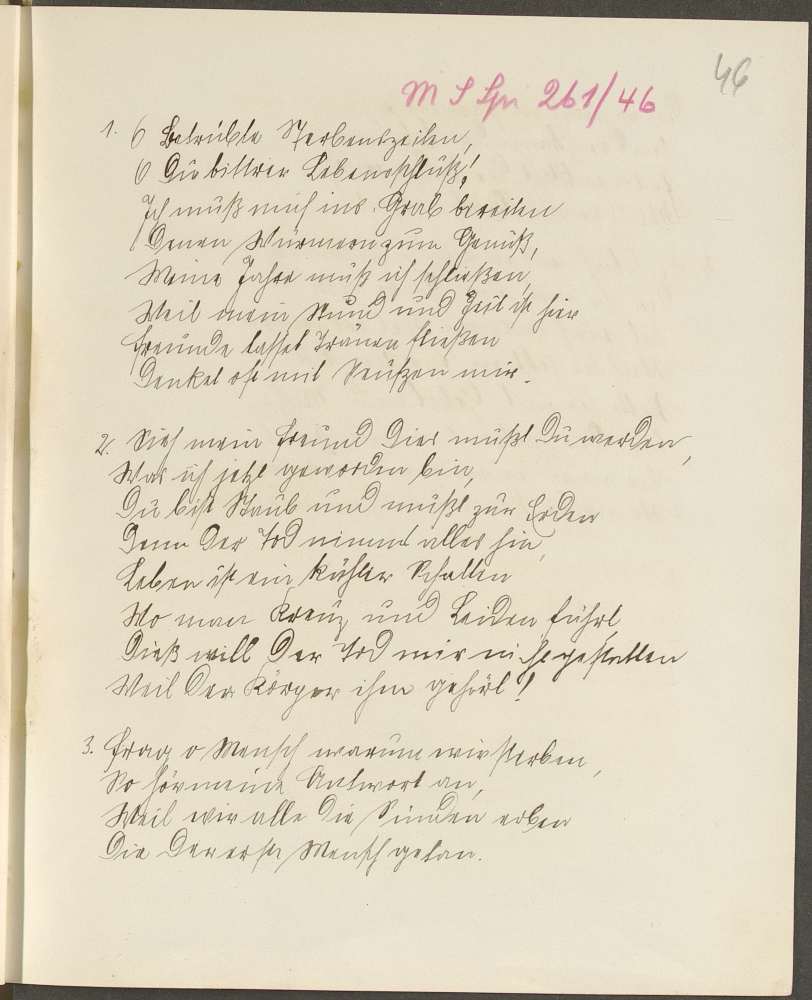 46
M S Spr 261/46
1. O Betrübte Sterbentzeiten,
O Du bittrer Lebensschluß!
Ich muß mich ins Grab bereiten
Denen Würmern zum Genuß,
Meine Jahre muß ich schließen,
Weil mein Stund und Zeit ist hier
Freunde lasset Tränen fließen
Denket oft mit Seufzen mir.
2. Sieh mein Freund Dies mußt Du werden,
Was ich jetzt geworden bin,
Du bist Staub und mußt zur Erden
Denn Der Tod nimmt alles hin,
Leben ist ein kühler Schatten
Wo man Kreuz und Leiden führt
Dieß will Der Tod mir nicht gestatten
Weil Der Körper ihm gehört!
3. Frag o Mensch warum wir sterben,
So hör meine Antwort an,
Weil wir alle Die Sünden erben
Die Der erste Mensch getan.